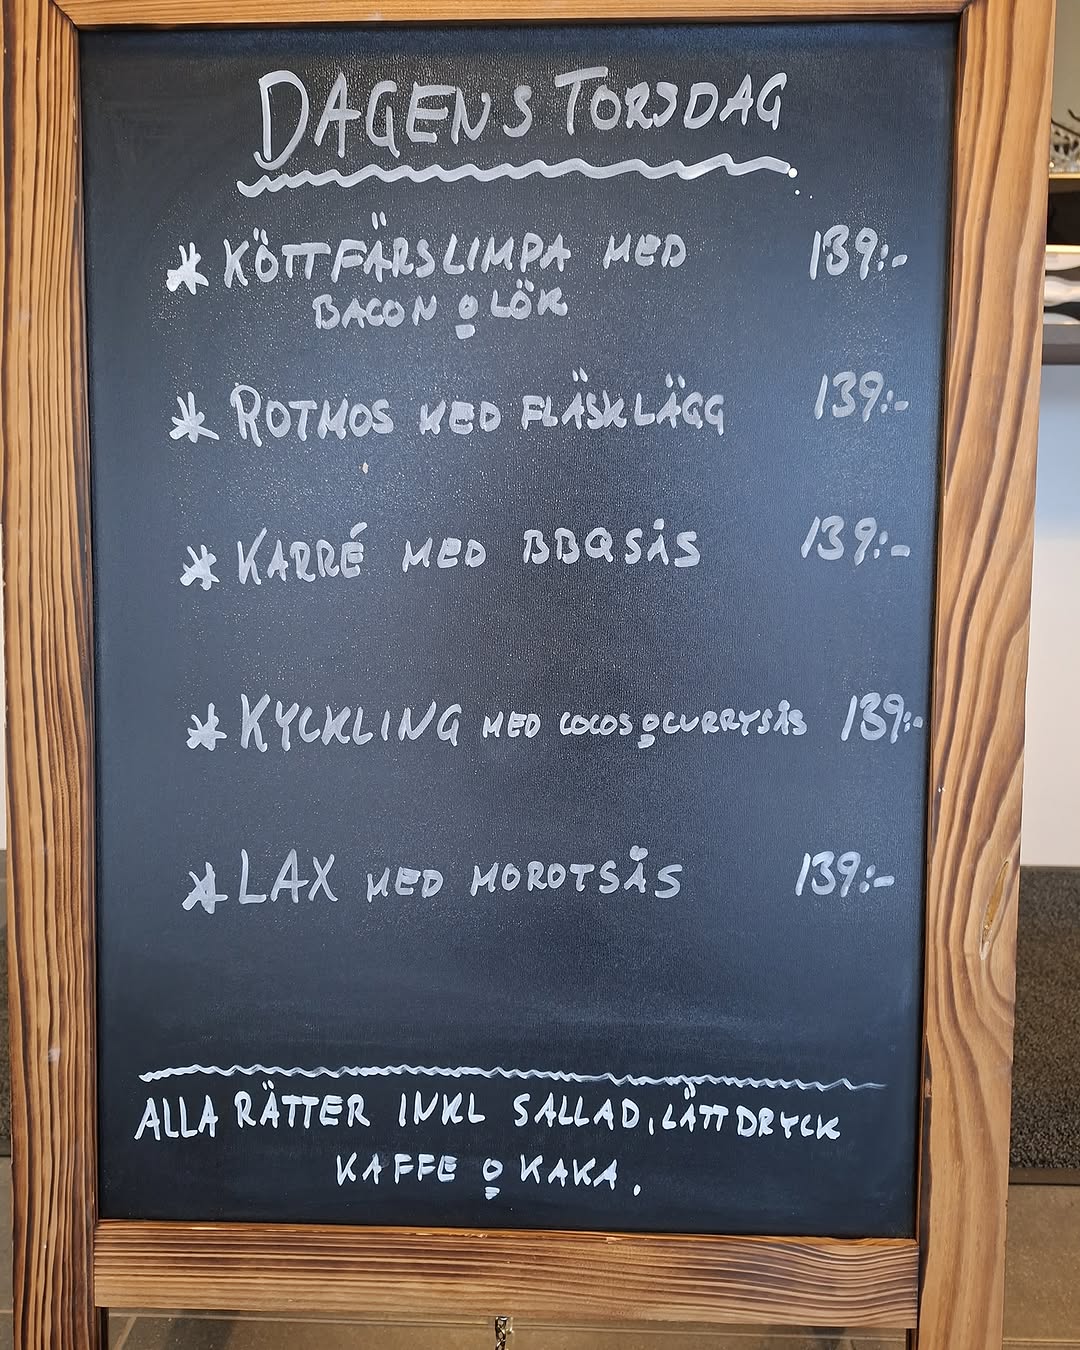 DAGENS TORSDAG
* KÖTTFÄRSLIMPA MED 139:-
BACON o LÖK
* ROTMOS MED FLÄSKLÄGG 139:-
* KARRÉ MED BBQSÅS 139:-
* KYCKLING MED COCOS o CURRYSÅS 139:-
* LAX MED MOROTSÅS 139:-
ALLA RÄTTER INKL SALLAD, LÄTTDRYCK
KAFFE o KAKA.